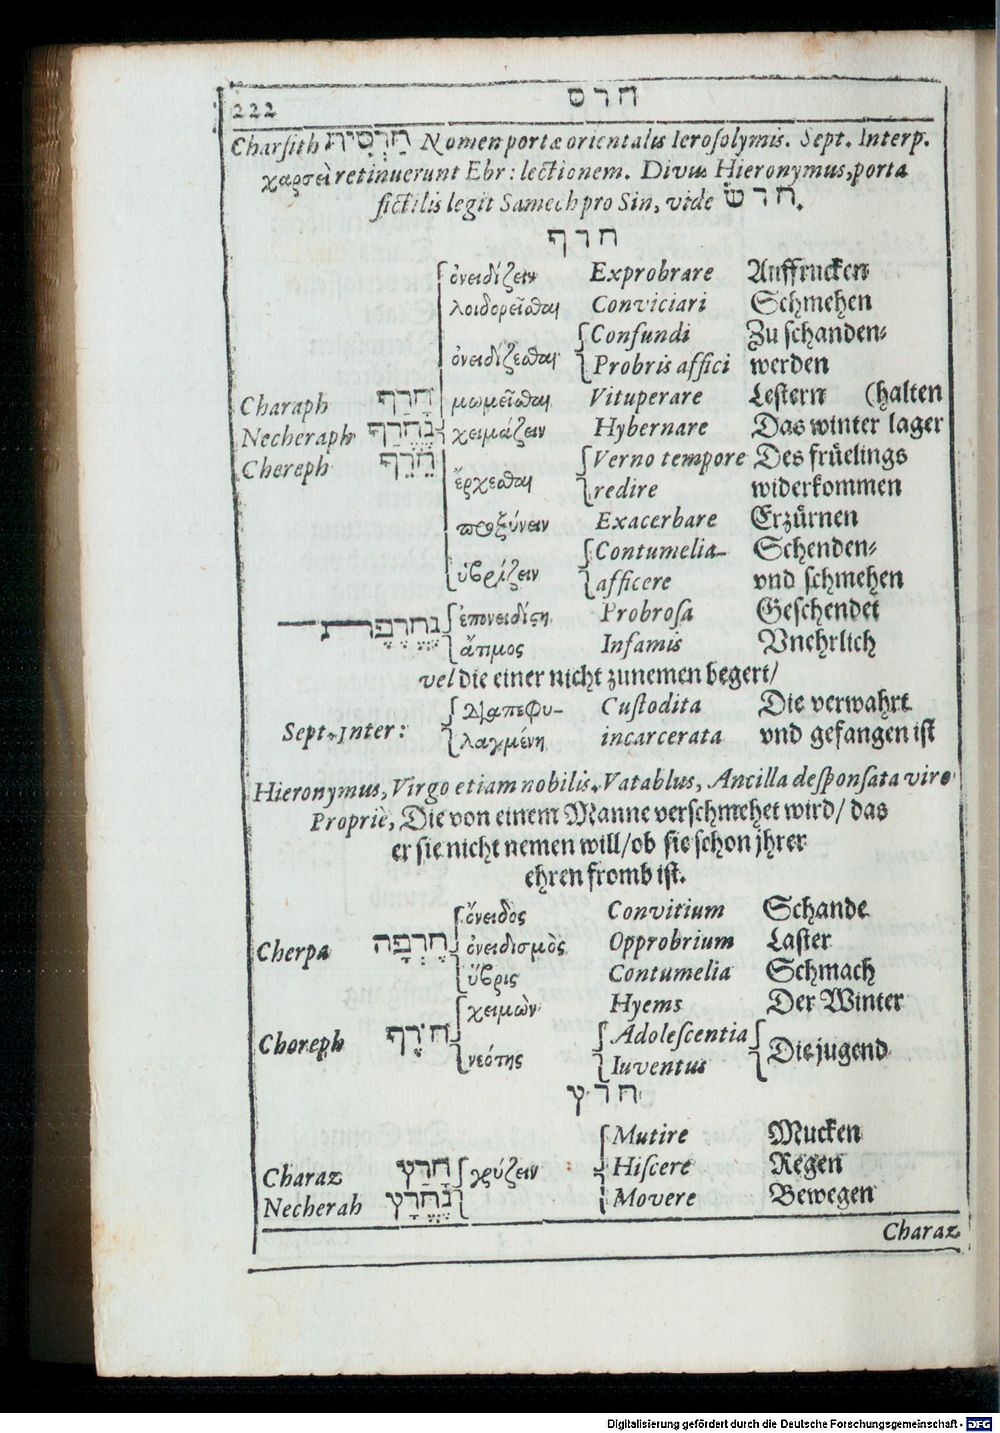 222 חרס
Charſith חַרְסִית Nomen portæ orientalis Ieroſolymis. Sept. Interp.
χαρσεὶ retinuerunt Ebr: lectionem. Divus Hieronymus, porta
fictilis legit Samech pro Sin, vide חרשׂ.
חרף
ὀνειδίζειν Exprobrare Auffrucken
λοιδορεῖσθαι Conviciari Schmehen
Confundi Zu ſchanden⸗
ὀνειδίζεσθαι Probris affici werden
Charaph חָרַף μωμεῖσθαι Vituperare Leſtern (halten
Necheraph נֶחֱרַף χειμάζειν Hybernare Das winter lager
Chereph חֵרֵף Verno tempore Des früelings
ἔρχεσθαι redire widerkommen
παροξύνειν Exacerbare Erzürnen
Contumelia- Schenden⸗
ὑβρίζειν afficere vnd ſchmehen
נֶחֱרֶפֶת ἐπονειδίση Probroſa Geſchendet
ἄτιμος Infamis Vnehrlich
vel die einer nicht zunemen begert/
διαπεφυ- Cuſtodita Die verwahrt
Sept. Inter: λαγμένη incarcerata vnd gefangen iſt
Hieronymus, Virgo etiam nobilis. Vatablus, Ancilla deſponſata viro
Propriè, Die von einem Manne verſchmehet wird/ das
er ſie nicht nemen will/ ob ſie ſchon jhrer
ehren fromb iſt.
ὄνειδος Convitium Schande
Cherpa חֶרְפָּה ὀνειδισμὸς Opprobrium Laſter
ὕβρις Contumelia Schmach
χειμὼν Hyems Der Winter
Choreph חֹרֶף Adoleſcentia
νεότης Iuventus Die jugend
חרץ
Mutire Mucken
Charaz חָרַץ γρύζειν Hiſcere Regen
Necherah נֶחֱרָץ Movere Bewegen
Charaz
Digitalisierung gefördert durch die Deutsche Forschungsgemeinschaft - DFG